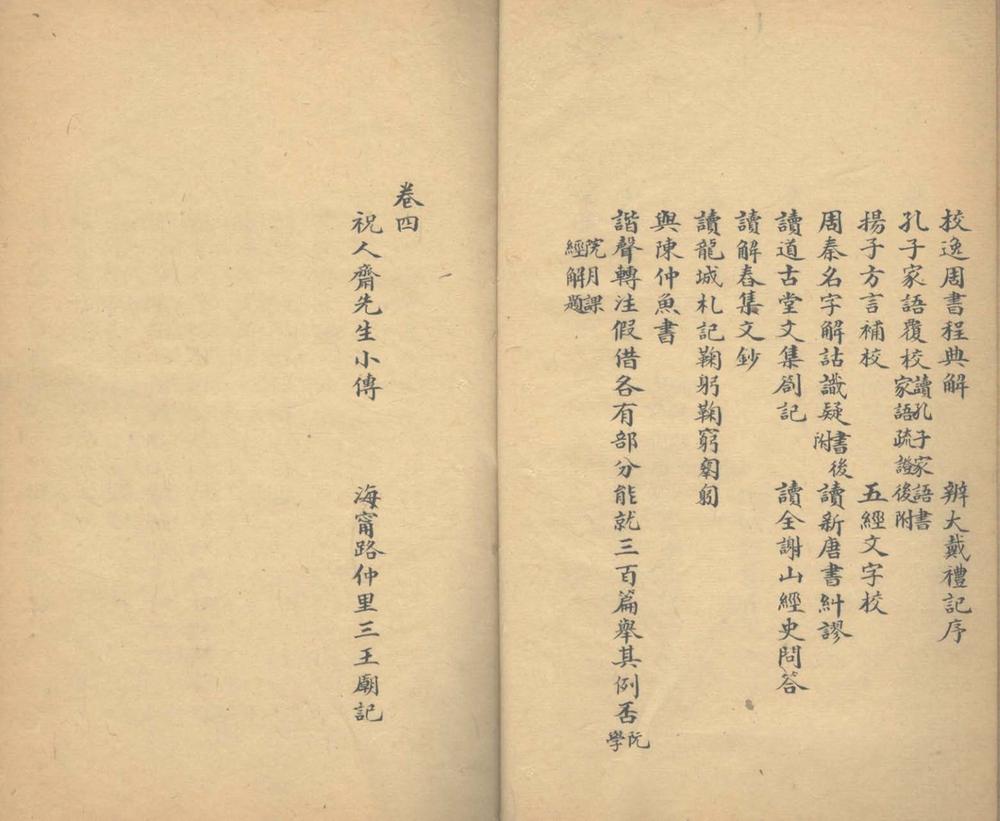 校逸周書程典解 辨大戴禮記序
孔子家語覆校 讀孔子家語書家語疏證後附
揚子方言補校 五經文字校
周秦名字解詁識疑 書後附 讀新唐書糾謬
讀道古堂文集劄記 讀全謝山經史問答
讀解舂集文鈔
讀龍城札記鞠躬鞠窮匑匔
與陳仲魚書
諧聲轉注假借各有部分能就三百篇舉其例否 阮學
院月課經解題
卷四
祝人齋先生小傳 海甯路仲里三王廟記